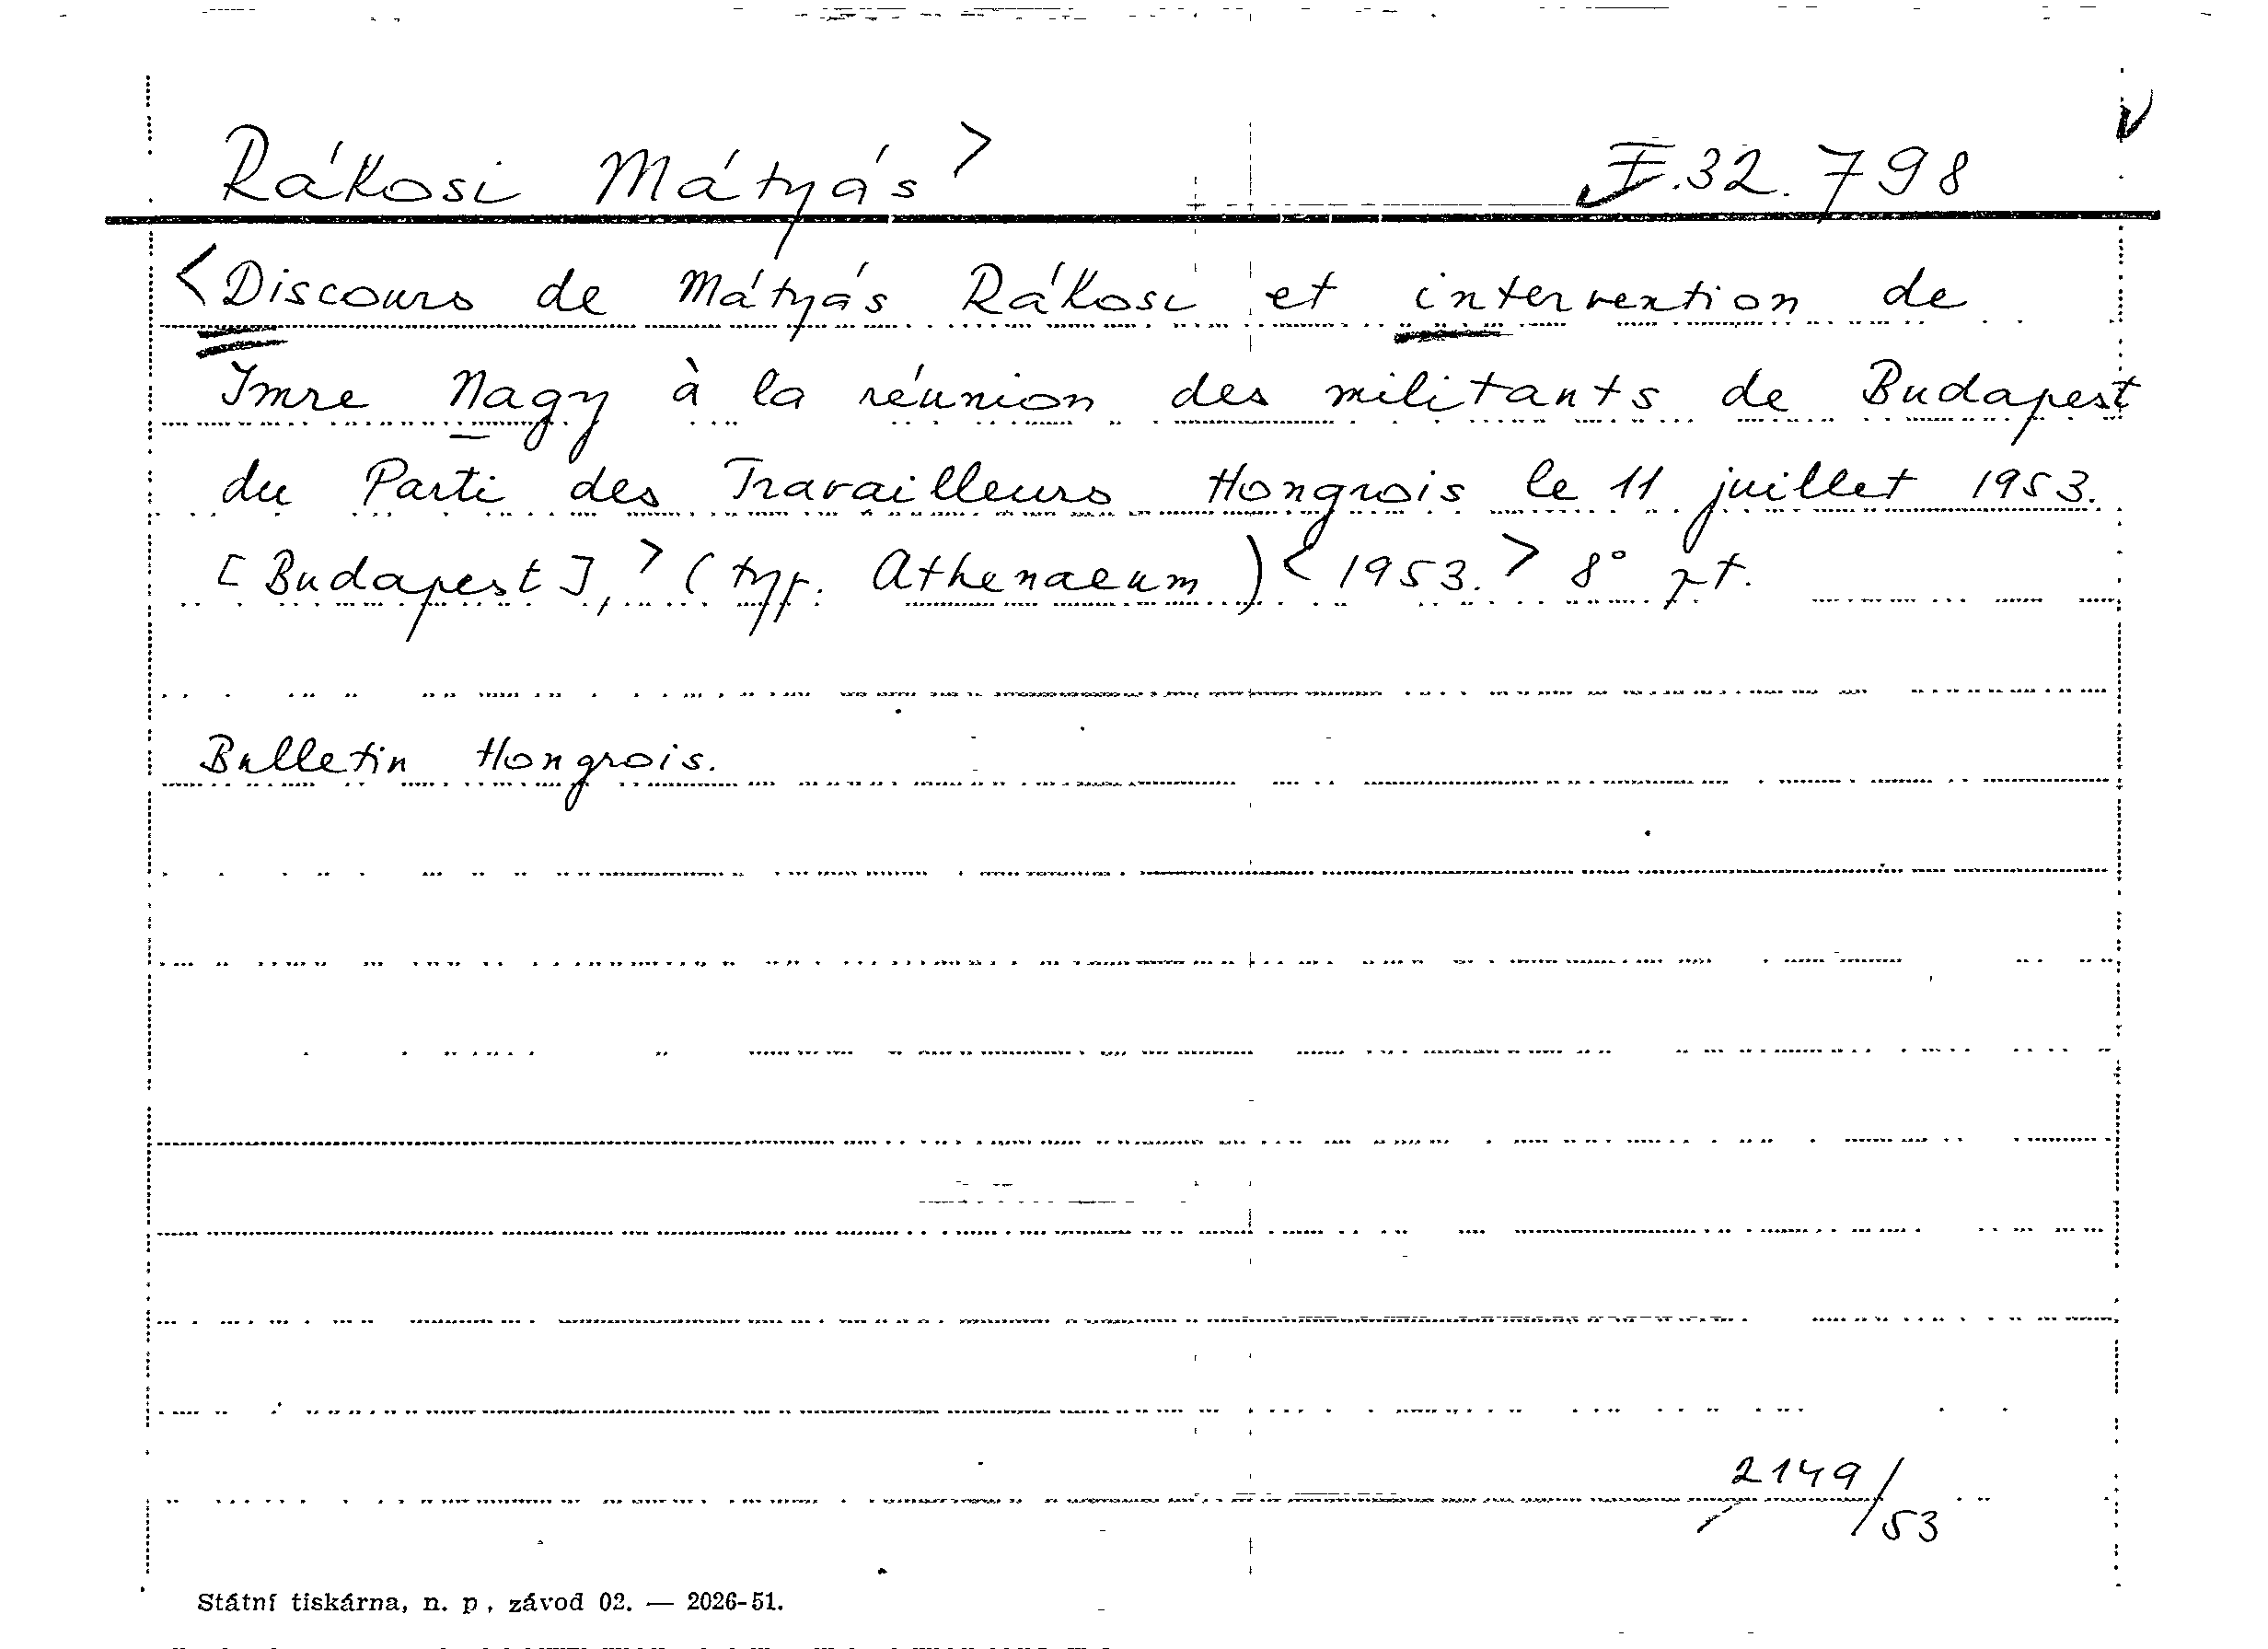 Rákosi Mátyás > I.32.798
<Discours de Mátyás Rákosi et intervention de
Imre Nagy à la réunion des militants de Budapest
du Parti des Travailleurs Hongrois le 11 juillet 1953.
[Budapest], > (typ. Athenaeum) < 1953. > 8°
Bulletin Hongrois.
2149/53
Státní tiskárna, n. p., závod 02. — 2026-51.